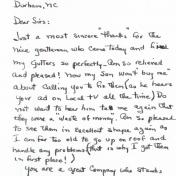 Durham, NC
Dear Sirs:
Just a most sincere "thanks" for the
nice gentlemen who came today and
my gutters so perfectly. Am so relieved
and pleased! Now my son won't bug me
about calling you to fix them (as he hears
your ad on local TV all the time) Do
not want to hear him tell me again that
they were a waste of money. Am so pleased
to see them in excellent shape again as
I am far too old to go up on roof and
handle any problems (that is why I got them
in first place!)
You are a great Company who stands